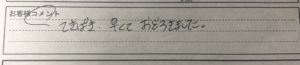 お客様コメント
てきぱき 早くて おどろきました。